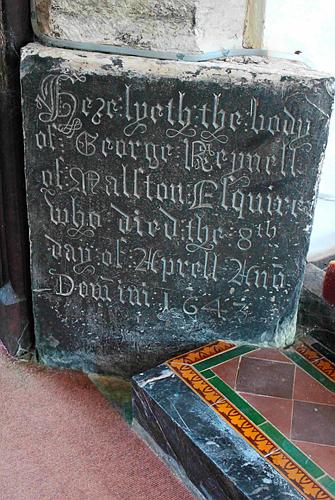 Here lyeth the body
of George Reynell
of Malston Esquire
who died the 8th
day of Aprell Ano
Domini 164